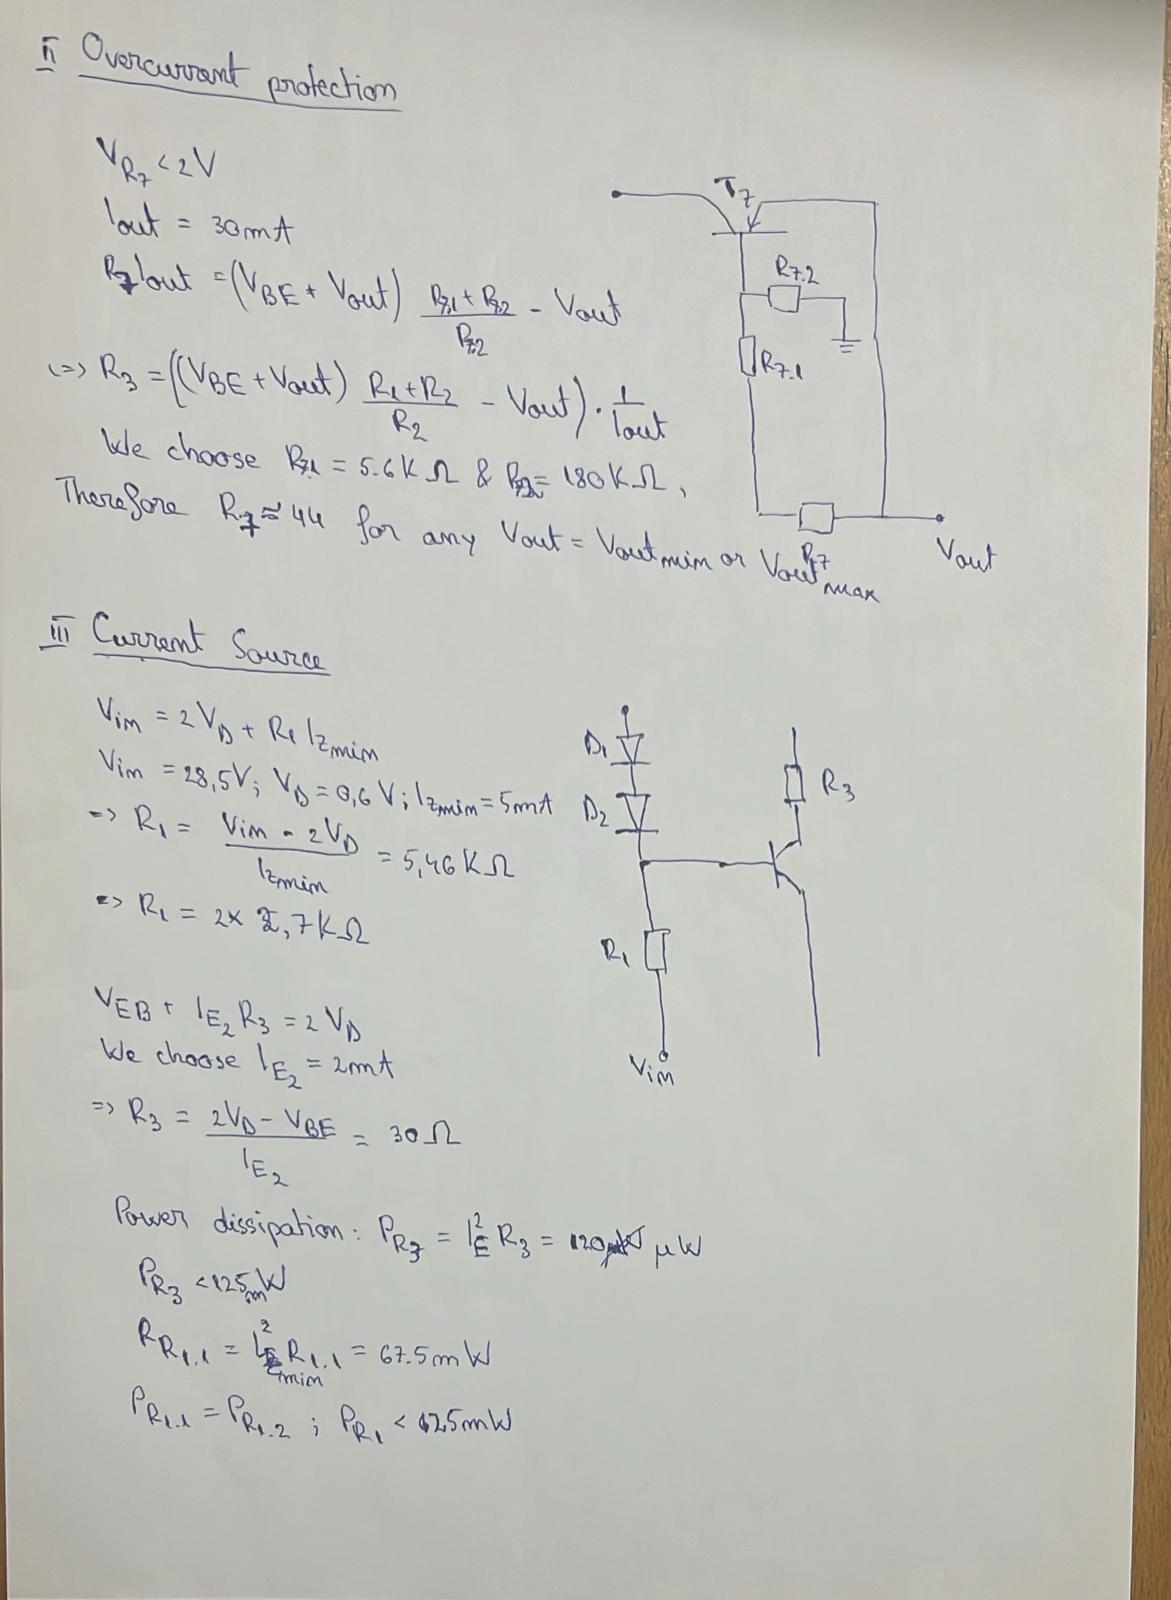 II Overcurrent protection
V_R7 < 2V
Iout = 30mA
R7 Iout = (VBE + Vout) (R7.1 + R7.2)/R7.2 - Vout
<=> R3 = ((VBE + Vout) (R1 + R2)/R2 - Vout) · 1/Iout
We choose R7.1 = 5.6KΩ & R7.2 = 180KΩ,
Therefore R7 ≈ 44 for any Vout = Voutmin or Voutmax
T7
R7.2
R7.1
R7
Vout
III Current Source
Vin = 2VD + R1 Izmin
Vin = 28,5V; VD = 0,6V; Izmin = 5mA
=> R1 = (Vin - 2VD)/Izmin = 5,46KΩ
=> R1 = 2x 2,7KΩ
D1
D2
R3
R1
Vin
VEB + IE2 R3 = 2VD
We choose IE2 = 2mA
=> R3 = (2VD - VBE)/IE2 = 30Ω
Power dissipation: PR3 = I²E R3 = 120 μW
PR3 < 125mW
PR1.1 = I²zmin R1.1 = 67.5mW
PR1.1 = PR1.2 ; PR1 < 125mW